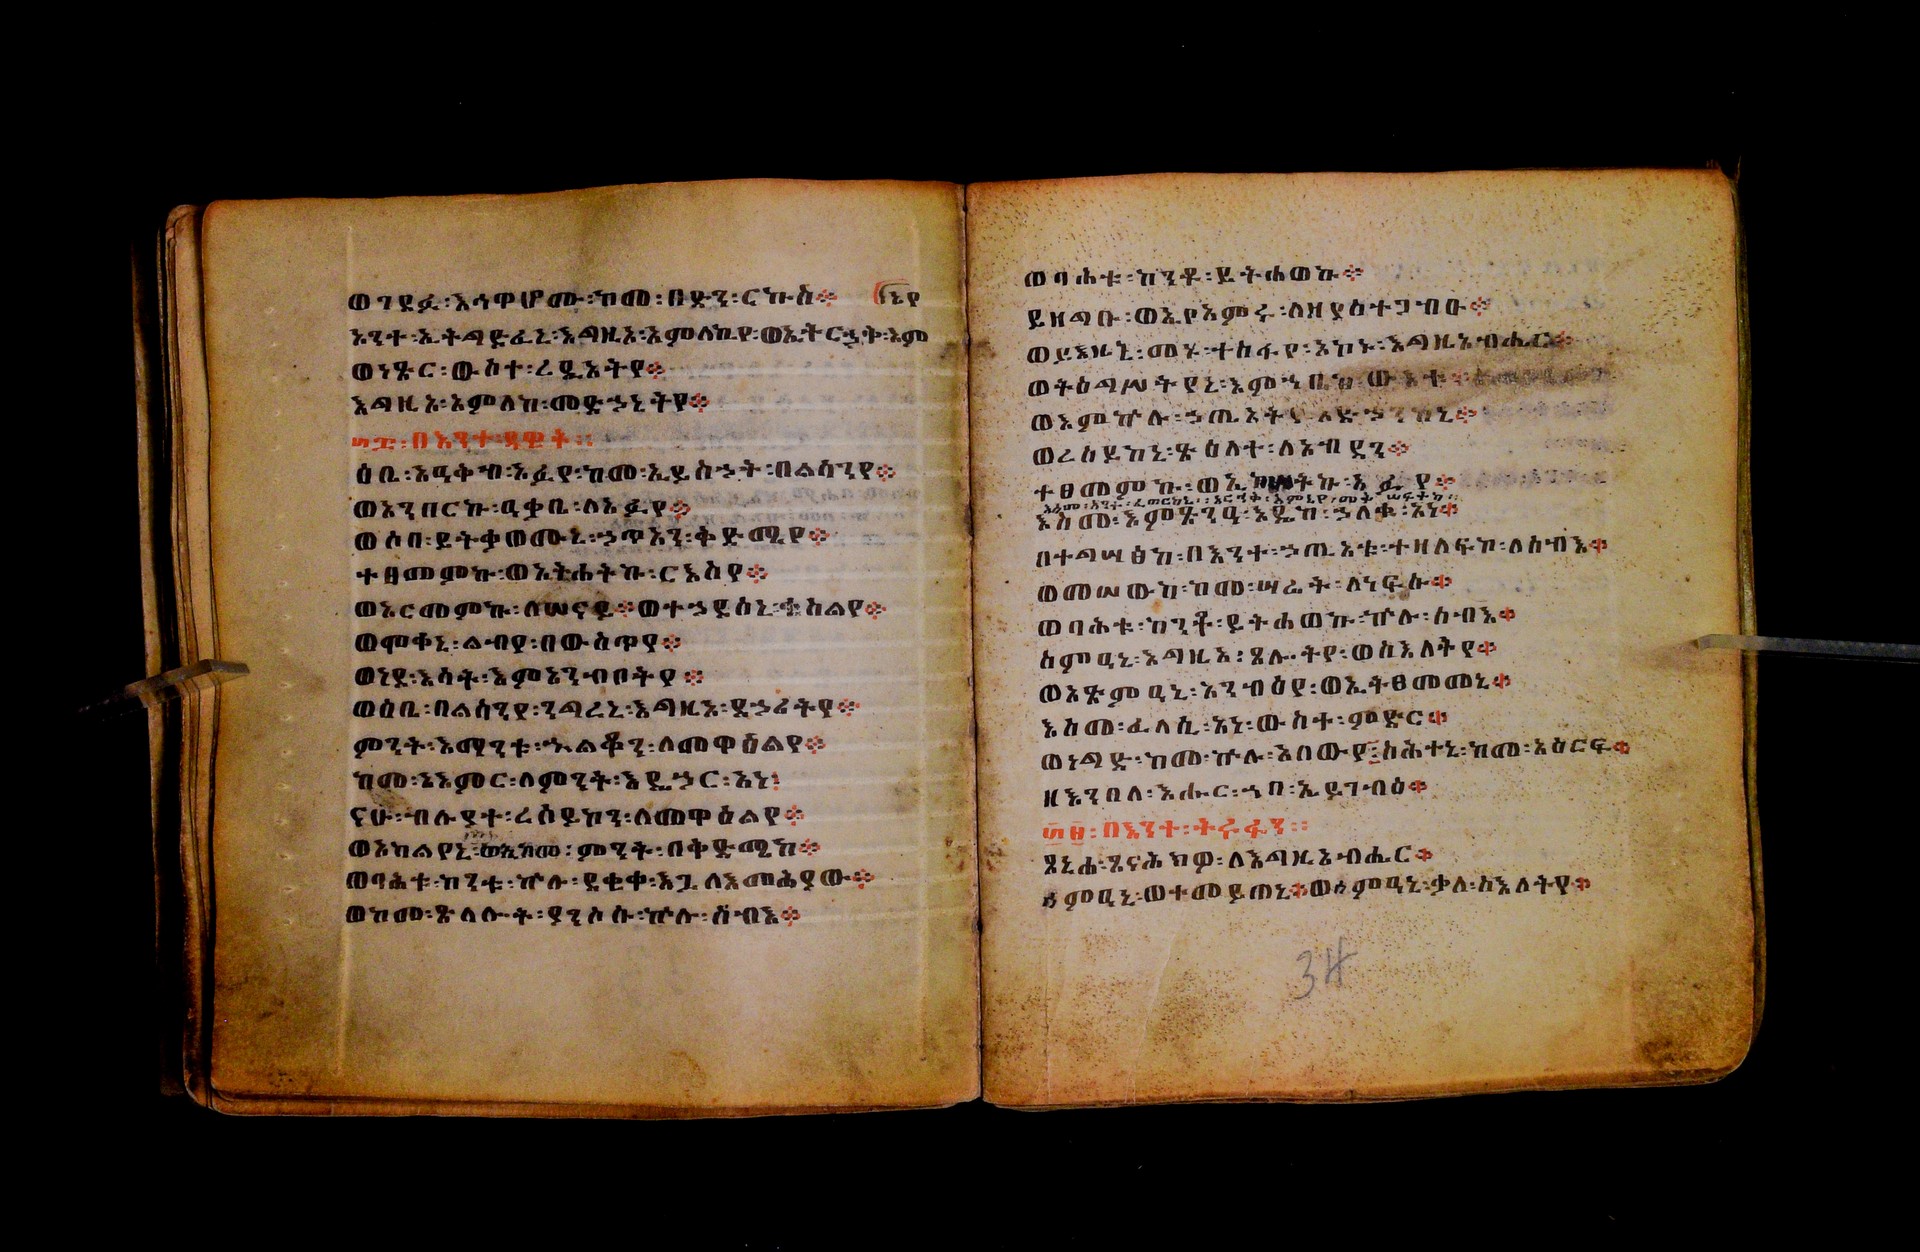 ወገደፉ፡እኅዋሆሙ፡ከመ፡በድን፡ርኩስ፨ ነየ
አንተ፡ኢትግድፈኒ፡እግዚኦ፡አምላኪየ፡ወኢትርኃቅ፡እም
ወነጽር፡ውስተ፡ረዲኦትየ፨
እግዚኦ፡አምላከ፡መድኃኒትየ፨
፴፰፡በእንተ፡ዳዊት፡፡
ዕቤ፡አዓቅብ፡አፉየ፡ከመ፡ኢይስኃት፡በልሳንየ፨
ወአንበርኩ፡ዓቃቤ፡ለአፉየ፨
ወሶበ፡ይትቃወሙኒ፡ኃጥአን፡ቅድሜየ፨
ተፀመምኩ፡ወአትሐትኩ፡ርእስየ፨
ወአርመምኩ፡ለሠናይ፨ወተኃደሰኒ፡ቁስልየ፨
ወሞቀኒ፡ልብየ፡በውስጥየ፨
ወነደ፡እሳት፡እምአንብቦትየ፨
ወዕቤ፡በልሳንየ፡ንግረኒ፡እግዚኦ፡ደኃሪትየ፨
ምንት፡እማንቱ፡ኍልቆን፡ለመዋዕልየ፨
ከመ፡አእምር፡ለምንት፡እዴኃር፡አነ፡
ናሁ፡ብሉያተ፡ረሰይከን፡ለመዋዕልየ፨
ወአካልየኒ፡ወኢከመ፡ምንት፡በቅድሜከ፨
ወባሕቱ፡ከንቱ፡ኵሉ፡ደቂቀ፡እጓለእመሕያው፨
ወከመ፡ጽላሎት፡ያንሶሱ፡ኵሉ፡ሰብእ፨
ወባሕቱ፡ከንቶ፡ይትሐወኩ፨
ይዘግቡ፡ወኢየአምሩ፡ለዘያስተጋብኡ፨
ወይእዜኒ፡መኑ፡ተስፋየ፡አኮኑ፡እግዚአብሔር፨
ወትዕግሥትየኒ፡እምኀቤከ፡ውእቱ፨
ወእምኵሉ፡ኃጢአትየ፡አድኃንከኒ፨
ወረሰይከኒ፡ጽዕለተ፡ለአብዳን፨
ተፀመምኩ፡ወኢከሠትኩ፡አፉየ፨
እስመ፡እምጽንዓ፡እዴከ፡ኃለቁ፡አነ፨
በተግሣፅከ፡በእንተ፡ኃጢአቱ፡ተዘለፍኮ፡ለሰብእ፨
ወመሠውካ፡ከመ፡ሣሬት፡ለነፍሱ፨
ወባሕቱ፡ከንቶ፡ይትሐወኩ፡ኵሉ፡ሰብእ፨
ስምዓኒ፡እግዚኦ፡ጸሎትየ፡ወስእለትየ፨
ወአጽምዓኒ፡አንብዕየ፡ወኢትፀመመኒ፨
እስመ፡ፈላሲ፡አነ፡ውስተ፡ምድር፨
ወነግድ፡ከመ፡ኵሉ፡አበውየ፡ስሕተኒ፡ከመ፡አዕርፍ፨
ዘእንበለ፡እሑር፡ኀበ፡ኢይገብዕ፨
፴፱፡በእንተ፡ትሩፋን፡፡
ጸኒሐ፡ጸናሕክዎ፡ለእግዚአብሔር፨
ሰምዓኒ፡ወተመይጠኒ፨ወሰምዓኒ፡ቃለ፡ስእለትየ፨
34